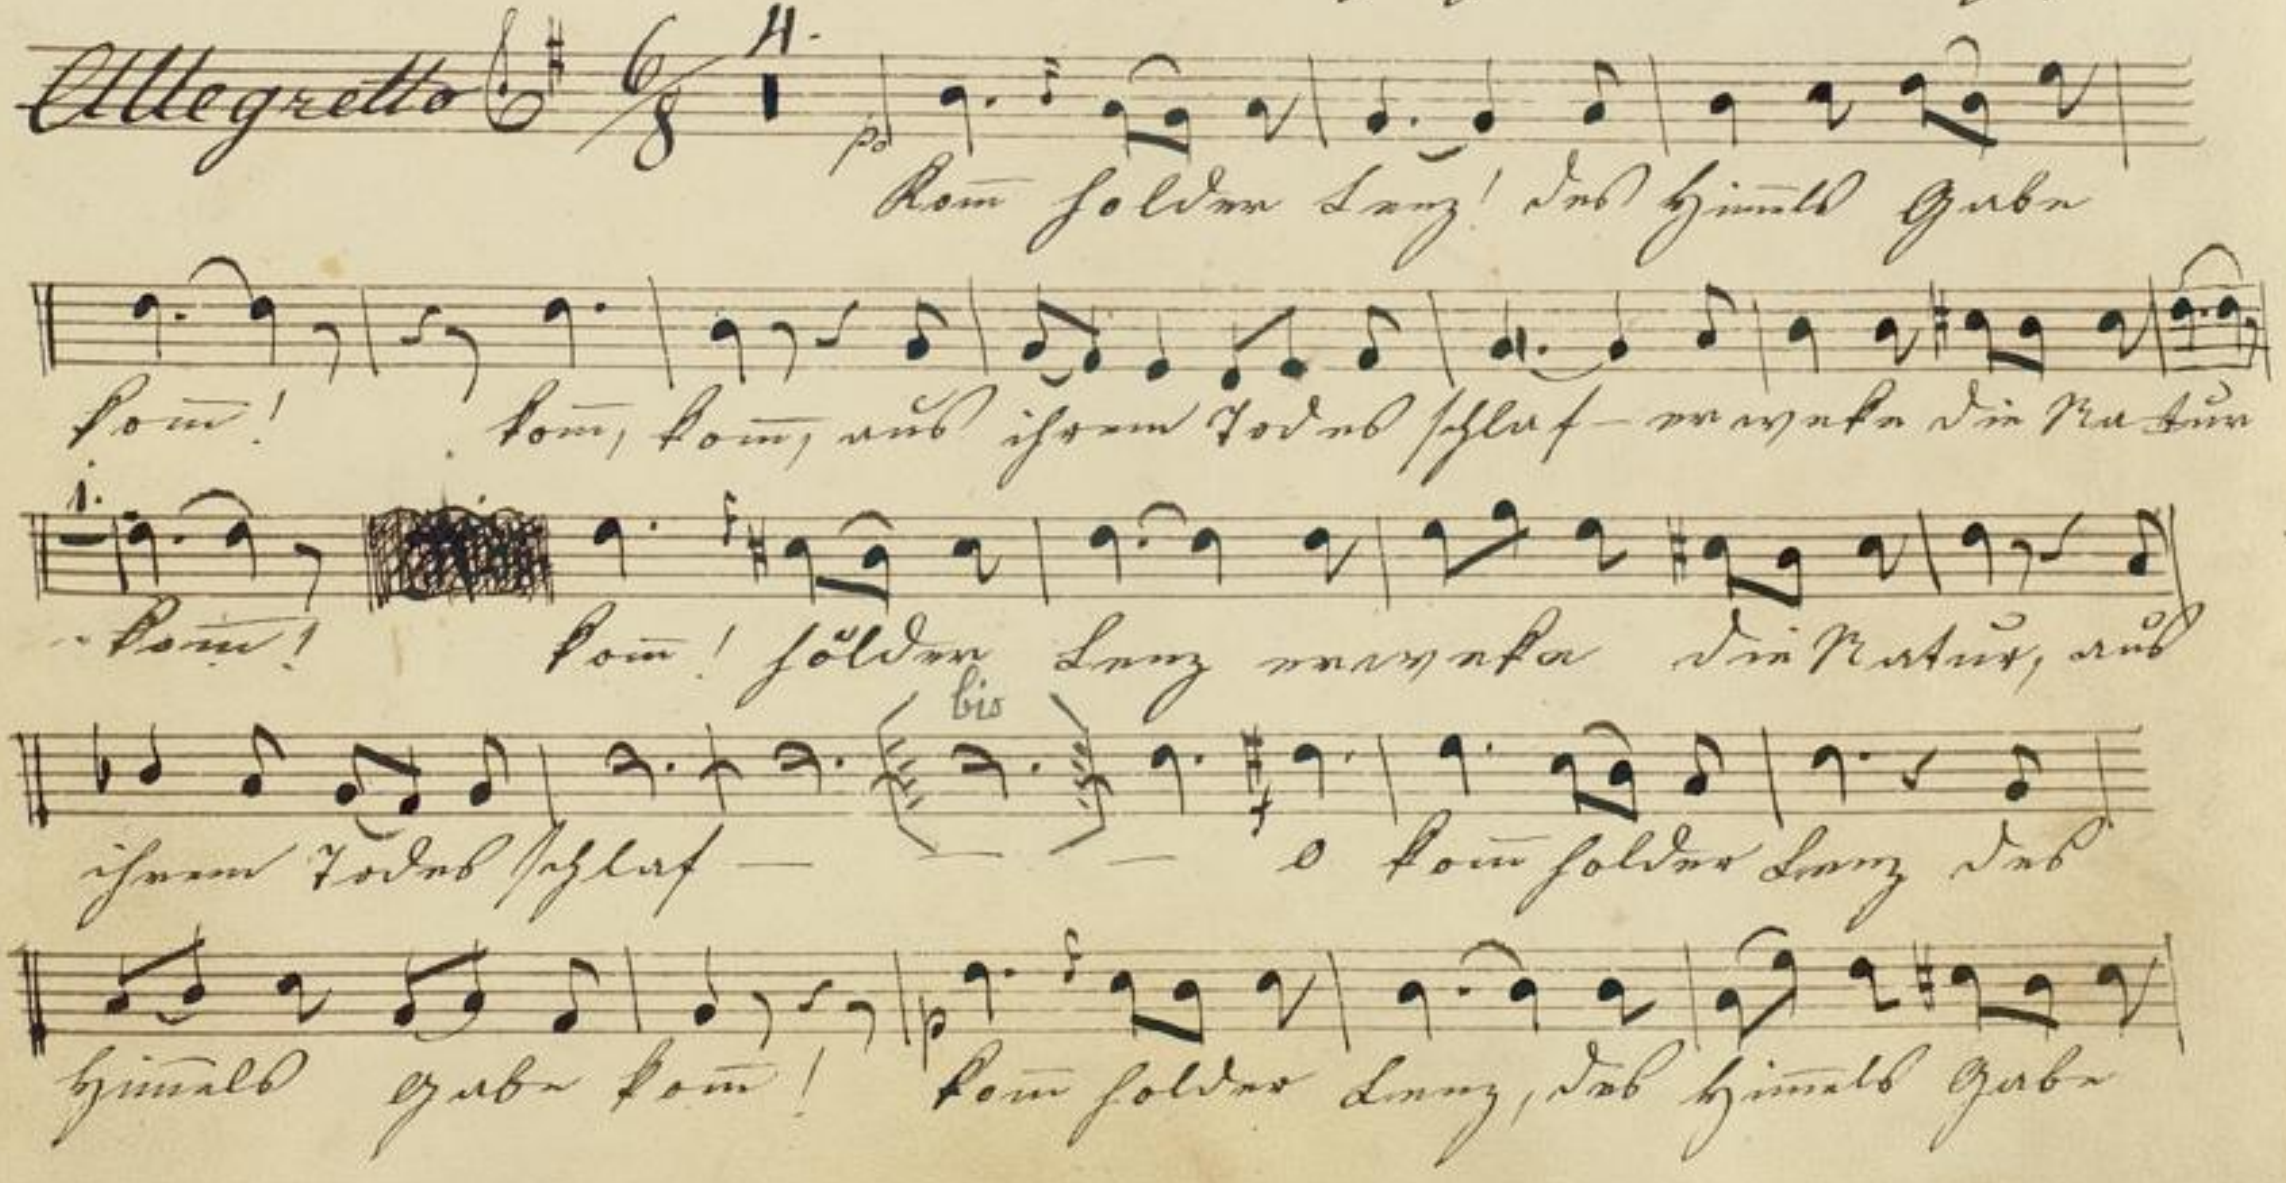 Allegretto 6/8 4. po
Kom̄ holder Lenz! des Him̄els Gabe
kom̄! kom̄, kom̄, aus ihrem Todes schlaf – erweke die Natur
1.
kom̄! kom̄! holder Lenz erweke die Natur, aus
bis
ihrem Todes schlaf — — — o kom̄ holder Lenz des
f
Him̄els Gabe kom̄! kom̄ holder Lenz, des Him̄els Gabe
p